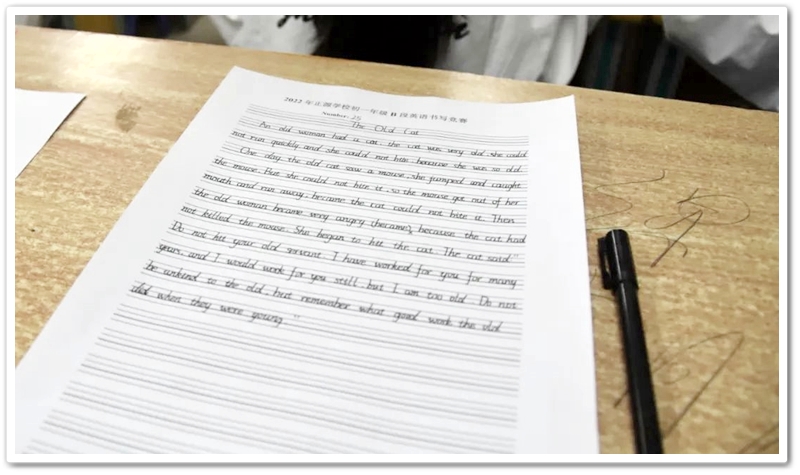 2022年正源学校初一年级 B 段英语书写竞赛
Number: 25
The Old Cat
An old woman had a cat. the cat was very old, she could
not run quickly and she could not bite because she was so old.
One day the old cat saw a mouse, she jumped and caught
the mouse. But she could not bite it, so the mouse got out of her
mouth and ran away, because the cat could not bite it. Then
the old woman became very angry (became), because the cat had
not killed the mouse. She began to hit the cat. The cat said "
Do not hit your old servant. I have worked for you for many
years, and I would work for you still, but I am too old. Do not
be unkind to the old, but remember what good work the old
did when they were young. "